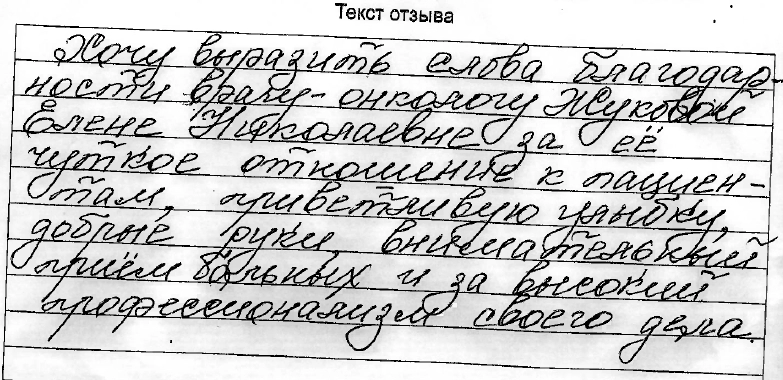 Текст отзыва
Хочу выразить слова благодар-
ности врачу-онкологу Жуковой
Елене Николаевне за её
чуткое отношение к пациен-
там, приветливую улыбку,
добрые руки, внимательный
приём больных и за высокий
профессионализм своего дела.